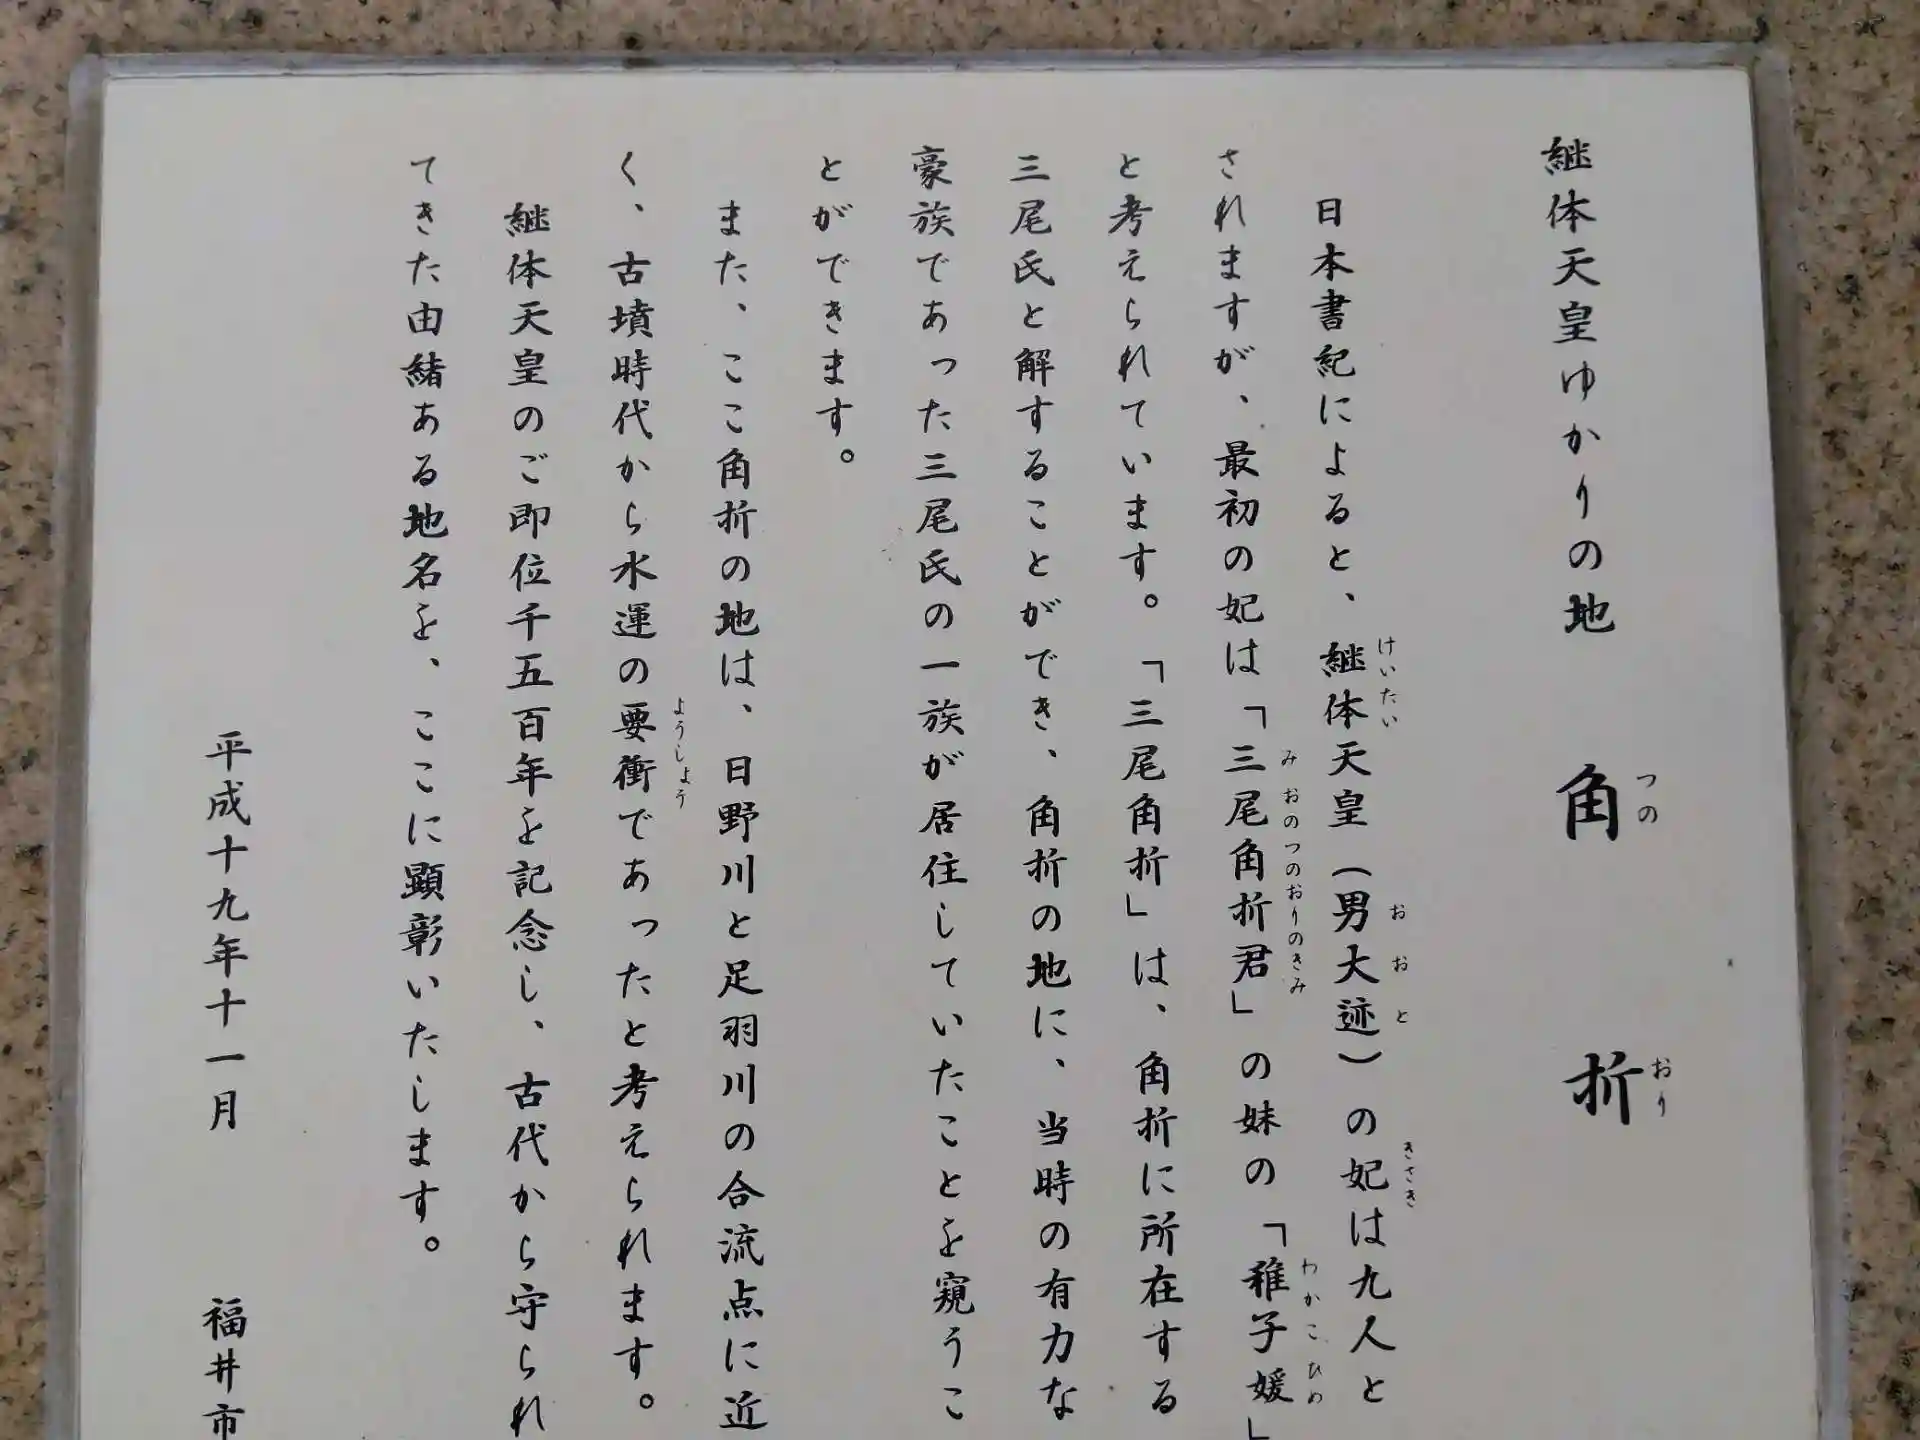 継体天皇ゆかりの地 角折
つの おり
日本書紀によると、継体天皇(男大迹)の妃は九人と
けいたい おおと きさき
されますが、最初の妃は「三尾角折君」の妹の「稚子媛」
みおのつのおりのきみ わかこひめ
と考えられています。「三尾角折」は、角折に所在する
三尾氏と解することができ、角折の地に、当時の有力な
豪族であった三尾氏の一族が居住していたことを窺うこ
とができます。
また、ここ角折の地は、日野川と足羽川の合流点に近
く、古墳時代から水運の要衝であったと考えられます。
ようしょう
継体天皇のご即位千五百年を記念し、古代から守られ
てきた由緒ある地名を、ここに顕彰いたします。
平成十九年十一月 福井市